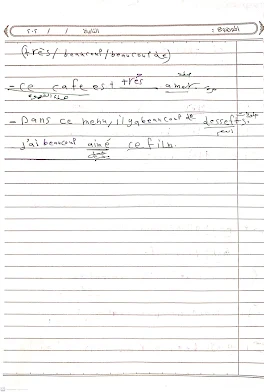 الموضوع : التاريخ / / ٢٠٢
(très/ beaucoup/beaucoup de)
صفة
- ce cafe est très amer
- Dans ce menu, il y a beaucoup de desserts.
اسم
j'ai beaucoup aimé ce film.